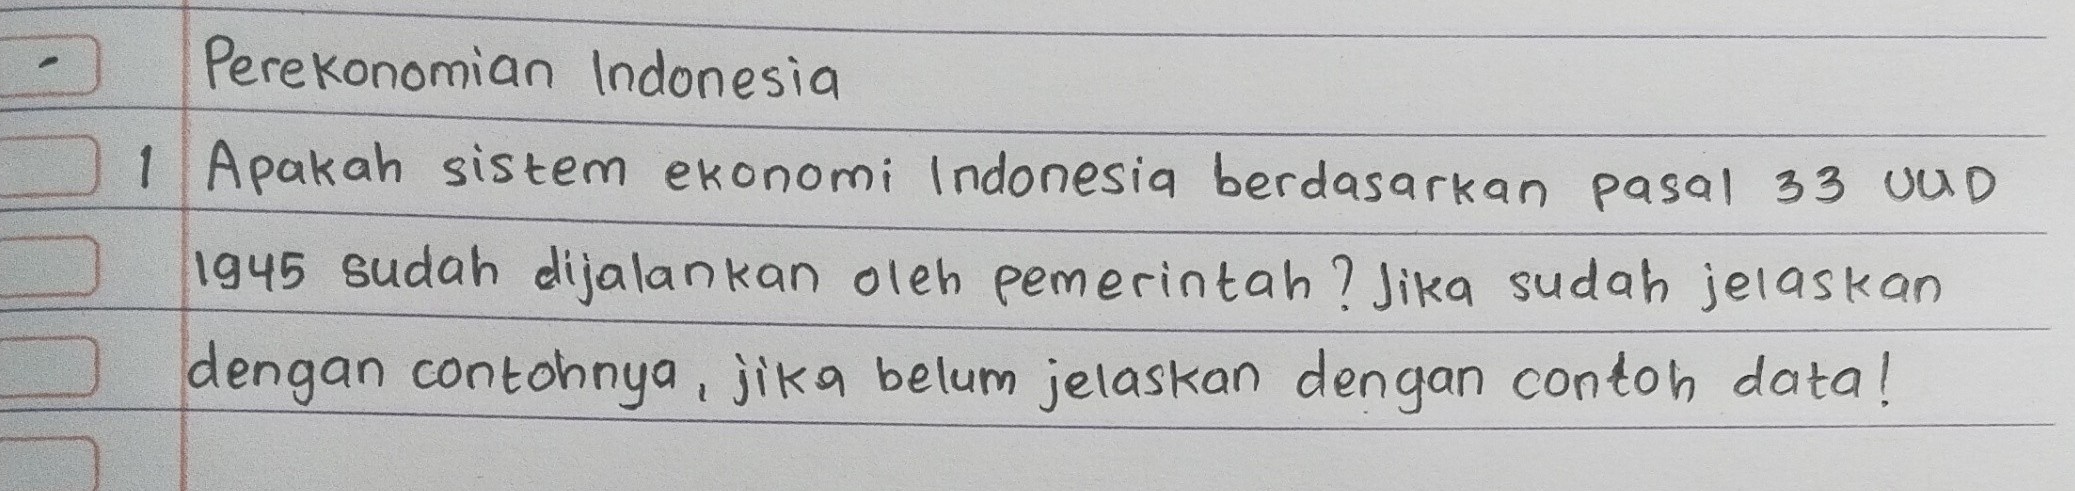 - Perekonomian Indonesia
1 Apakah sistem ekonomi Indonesia berdasarkan pasal 33 UUD
1945 sudah dijalankan oleh pemerintah? Jika sudah jelaskan
dengan contohnya, jika belum jelaskan dengan contoh data!